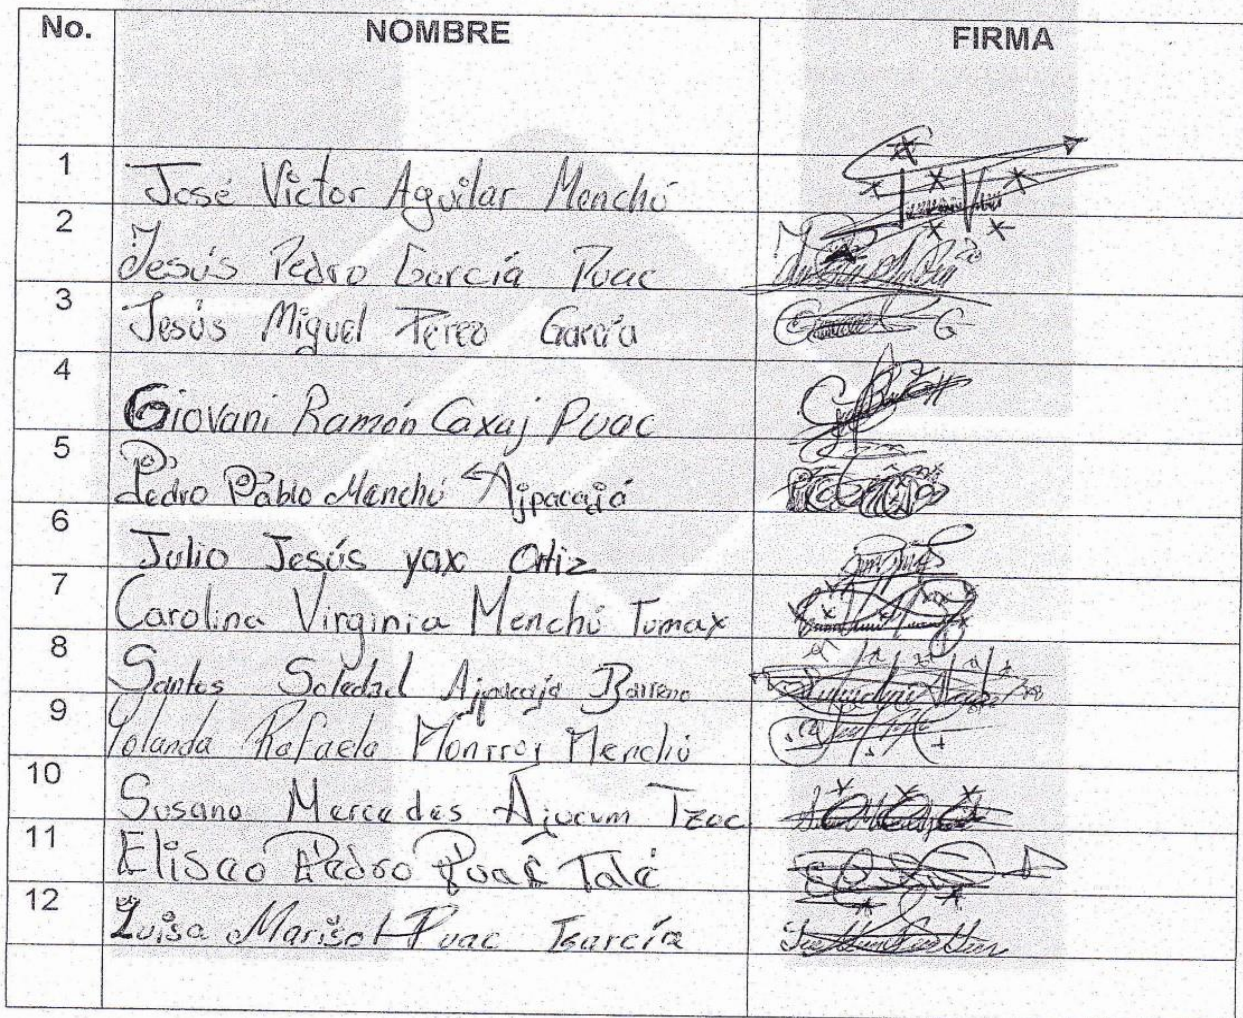 No. NOMBRE FIRMA
1 José Victor Aguilar Menchú
2 Jesús Pedro García Puac
3 Jesús Miguel Perez García
4 Giovani Ramón Caxaj Puac
5 Pedro Pablo Menchú Ajpacajá
6 Julio Jesús yax Ortiz
7 Carolina Virginia Menchú Tumax
8 Santos Soledad Ajpacaja Barreno
9 Yolanda Rafaela Monrroy Menchú
10 Susana Mercedes Ajucum Tzoc
11 Eliseo Pedro Puac Talé
12 Luisa Marisol Puac García